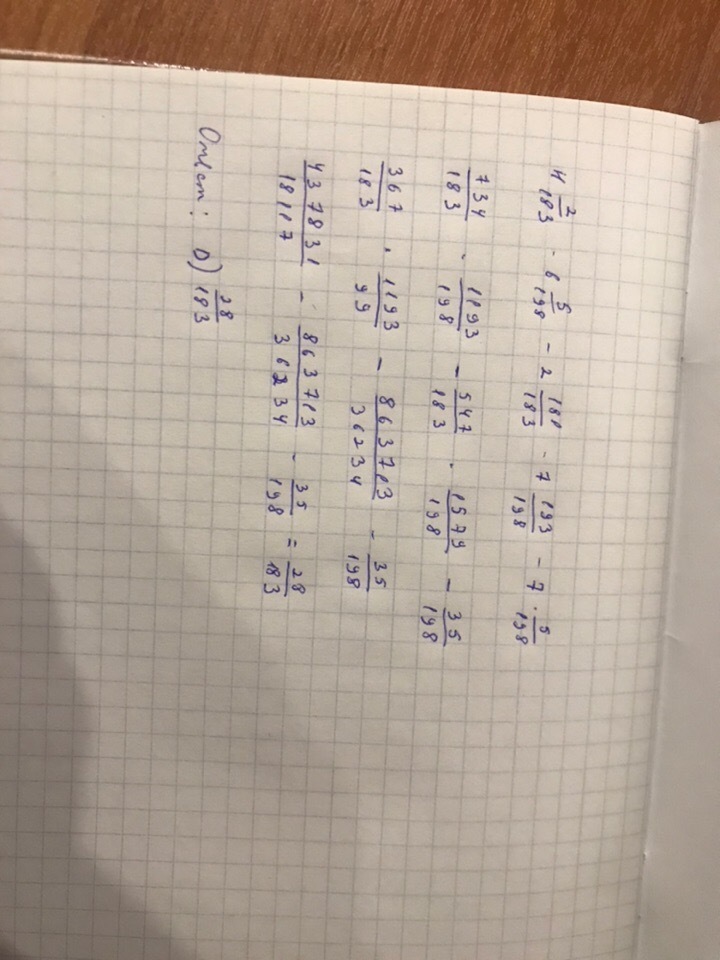 4 2/183 · 6 5/198 - 2 181/183 · 7 193/198 - 7 · 5/198
734/183 · 1193/198 - 547/183 · 1579/198 - 35/198
367/183 · 1193/99 - 863713/36234 - 35/198
437831/18117 - 863713/36234 - 35/198 = 28/183
Ответ: D) 28/183